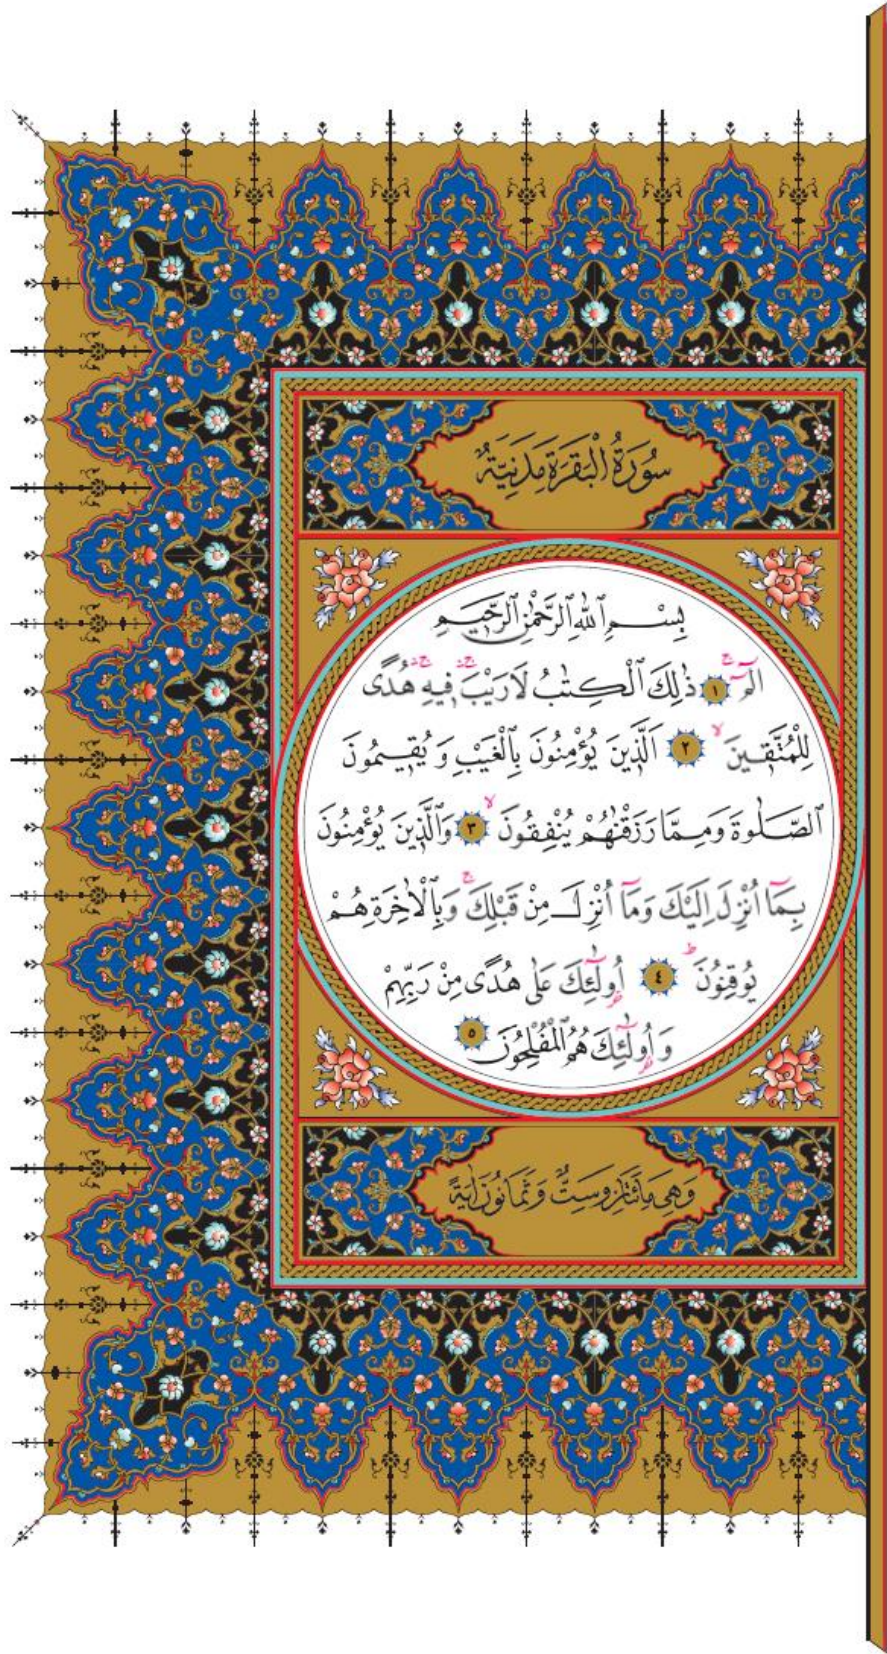 سُورَةُ الْبَقَرَةِ مَدَنِيَّةٌ
بِسْمِ ٱللّٰهِ ٱلرَّحْمٰنِ ٱلرَّحِيمِ
الٓمٓ ۚ ﴿١﴾ ذٰلِكَ ٱلْكِتٰبُ لَا رَيْبَ ۛ فِيهِ ۛ هُدًى
لِلْمُتَّقِينَ ۙ ﴿٢﴾ اَلَّذِينَ يُؤْمِنُونَ بِٱلْغَيْبِ وَ يُقِيمُونَ
ٱلصَّلٰوةَ وَمِمَّا رَزَقْنٰهُمْ يُنْفِقُونَ ۙ ﴿٣﴾ وَٱلَّذِينَ يُؤْمِنُونَ
بِمَٓا اُنْزِلَ اِلَيْكَ وَمَٓا اُنْزِلَ مِنْ قَبْلِكَ ۚ وَبِٱلْاٰخِرَةِ هُمْ
يُوقِنُونَ ؕ ﴿٤﴾ اُولٰٓئِكَ عَلٰى هُدًى مِنْ رَبِّهِمْ
وَ اُولٰٓئِكَ هُمُ ٱلْمُفْلِحُونَ ﴿٥﴾
وَهِىَ مِائَتَانِ وَسِتٌّ وَثَمَانُونَ اٰيَةً